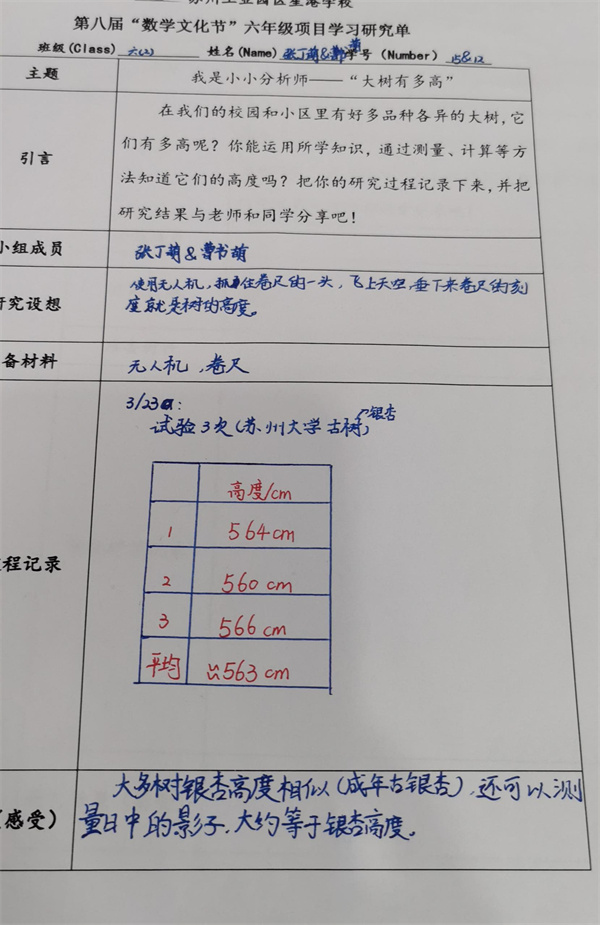 第八届“数学文化节”六年级项目学习研究单
班级(Class) 六(2) 姓名(Name) 张丁萌&曹书萌 学号 (Number) 15&12
主题
我是小小分析师——“大树有多高”
引言
在我们的校园和小区里有好多品种各异的大树,它
们有多高呢?你能运用所学知识,通过测量、计算等方
法知道它们的高度吗?把你的研究过程记录下来,并把
研究结果与老师和同学分享吧!
小组成员
张丁萌&曹书萌
研究设想
使用无人机,抓住卷尺的一头,飞上天空,垂下来卷尺的刻
度就是树的高度。
备材料
无人机,卷尺
3/23日:
试验3次(苏州大学古树)
银杏
程记录
高度/cm
1 564cm
2 560 cm
3 566 cm
平均 ≈563 cm
感受)
大多树银杏高度相似(成年古银杏),还可以测
量日中的影子,大约等于银杏高度。